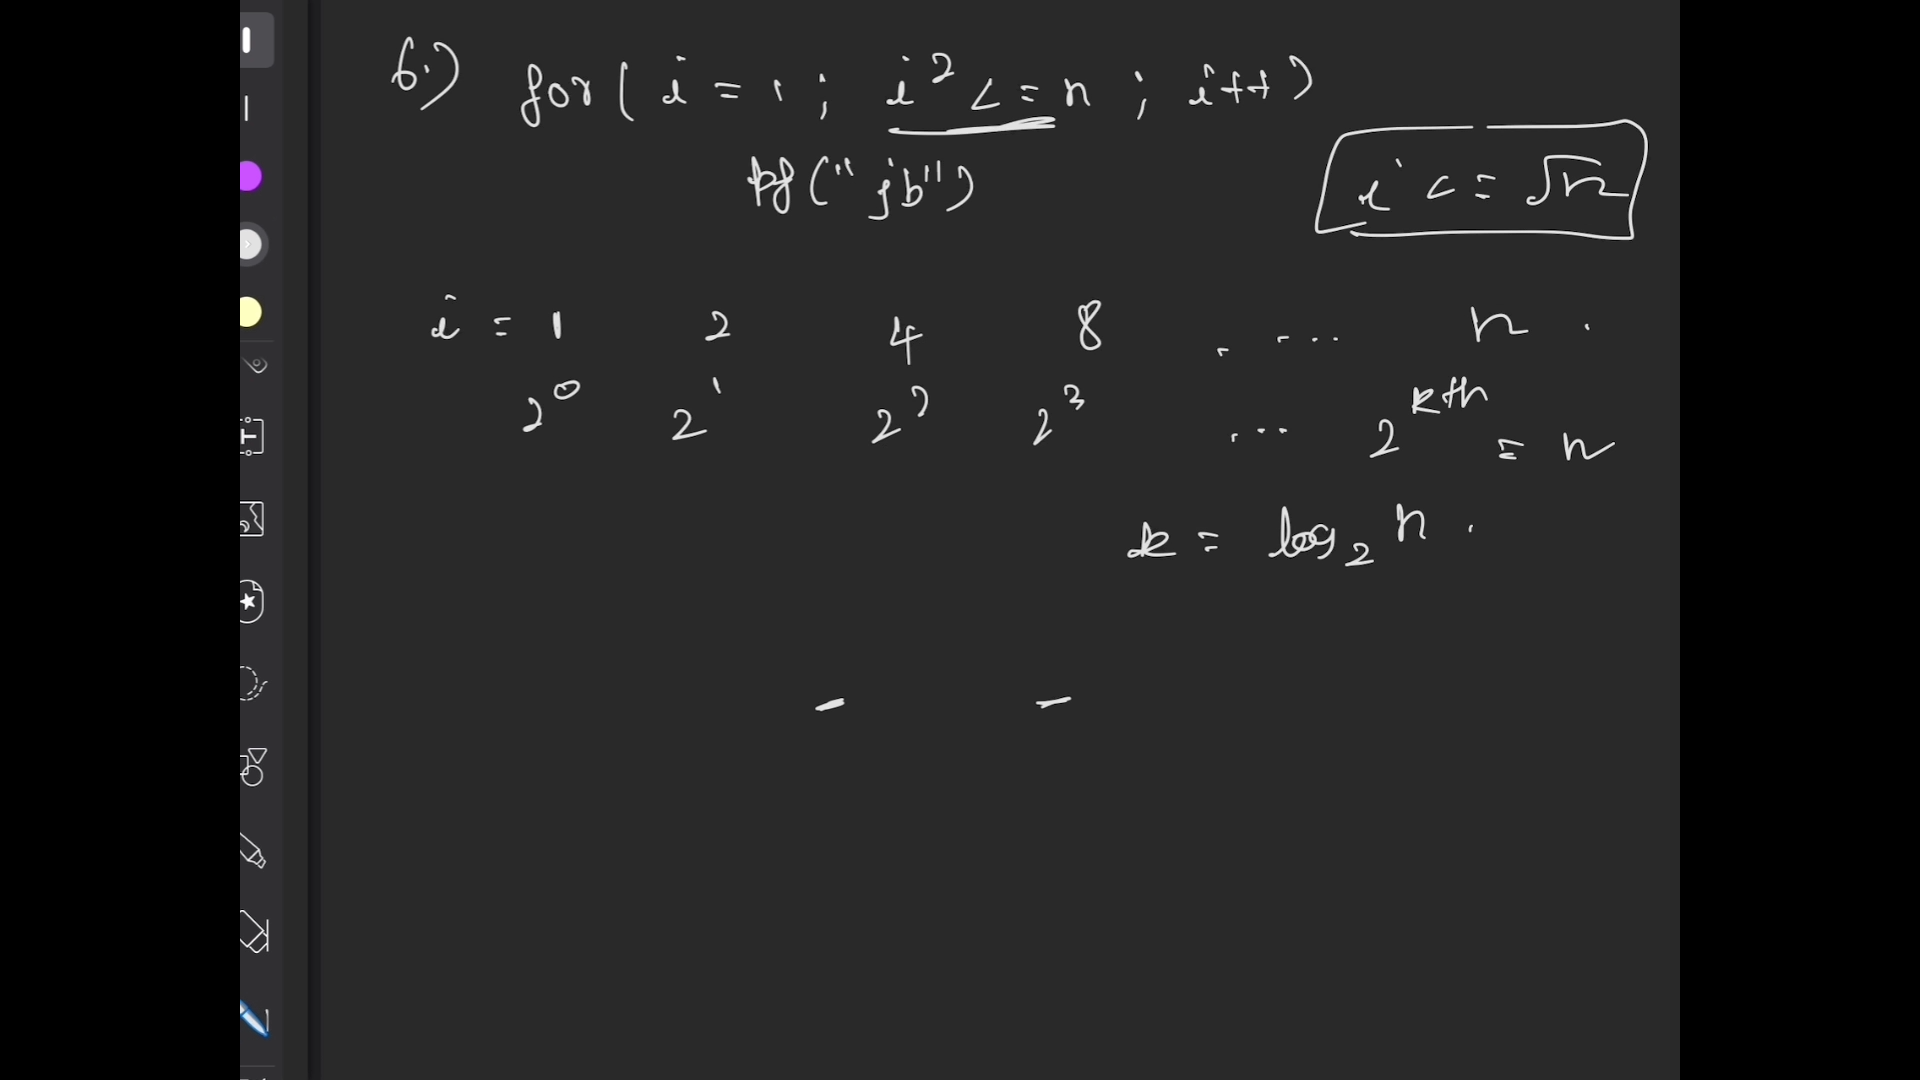 6.) for( i = 1 ; i² <= n ; i++)
pf("jb")
i <= √n
i = 1 2 4 8 . .... n .
2⁰ 2¹ 2² 2³ ... 2ᵏᵗʰ = n
k = log₂ n .